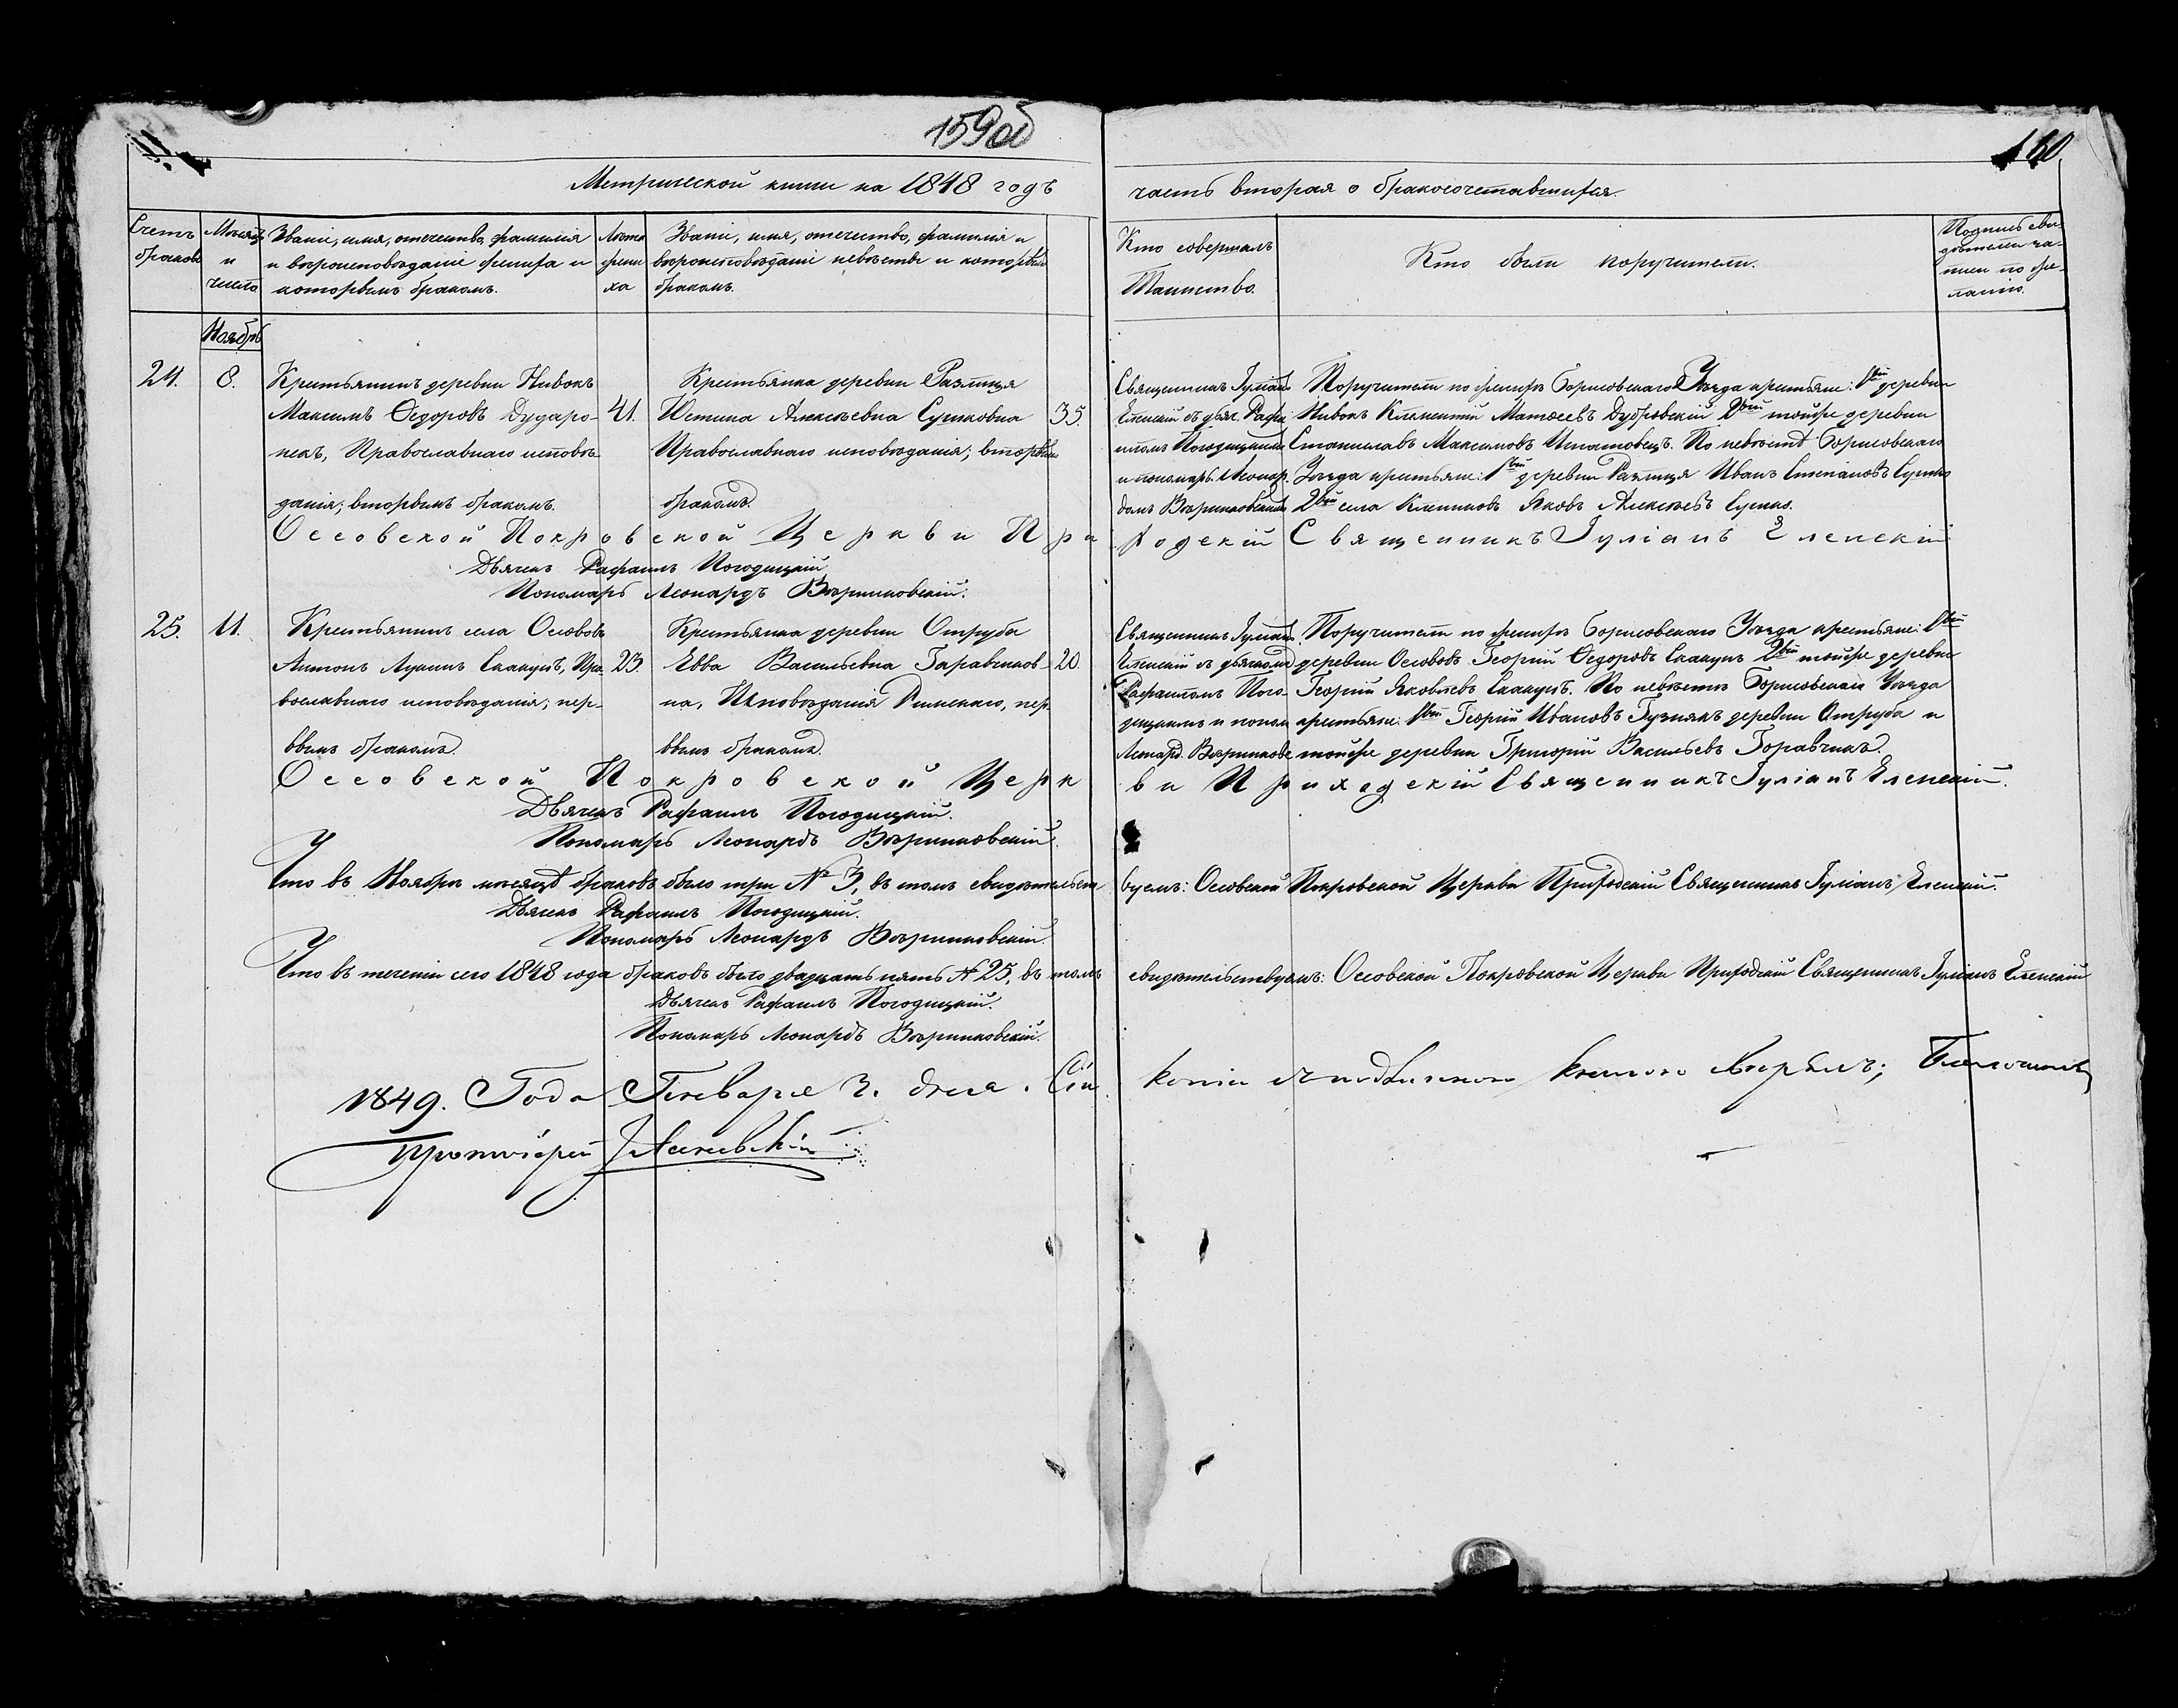 159об
160
Метрической книги на 1848 годъ
часть вторая о бракосочетавшихся.
Счетъ браковъ
Месяцъ и число
Званіе, имя, отечество, фамилія
и вероисповѣданіе жениха и
которымъ бракомъ.
Лѣта жени ха
Званіе, имя, отечество, фамилія и
вероисповѣданіе невѣсты и которымъ
бракомъ.
Кто совершалъ
Таинство.
Кто были поручители.
Подпись сви-
дѣтелей за-
писи по же-
ланію.
Ноябрь
24. 8.
Крестьянинъ деревни Нивокъ
Максимъ Ѳедоровъ Дударо-
некъ, Православнаго исповѣ-
данія; вторымъ бракомъ.
41.
Крестьянка деревни
Юстина Алексѣевна Сушковна
Православнаго исповѣданія; вторымъ
бракомъ.
35.
Священникъ Іуліанъ
Еленскій съ дьяч. Рафа
иломъ Погодицкимъ
и пономарь Леонар.
домъ Вѣриниковскимъ
Поручители по женихѣ Борисовскаго Уѣзда крестьяне: 1вый деревни
Нивокъ Климентій Матѳеевъ Дубровскій 2вый тойже деревни
Станиславъ Максимовъ Игнатовецъ. По невѣстѣ Борисовскаго
Уѣзда крестьяне: 1вый деревни Иванъ Степановъ Сушко
2вый села Клинниковъ Яковъ Алексѣевъ Сушко.
Оссовской Покровской Церкви При
ходскій Священникъ Іуліанъ Еленскій
Дьячекъ Рафаилъ Погодицкій
Пономарь Леонардъ Вѣриниковскій.
25. 11.
Крестьянинъ села Осововъ
Антонъ Лукинъ Скакунъ, Пра-
вославнаго исповѣданія; пер-
вымъ бракомъ.
23.
Крестьянка деревни Отруба
Евва Васильевна Гаравчиков-
на, Исповѣданія Римскаго, пер-
вымъ бракомъ.
20.
Священникъ Іуліанъ
Еленскій съ дьячкомъ
Рафаиломъ Пого-
дицкимъ и поном
Леонард. Вѣриников
Поручители по женихѣ Борисовскаго Уѣзда крестьяне: 1вый
деревни Осововъ Георгій Ѳедоровъ Скакунъ 2вый тойже деревни
Георгій Яковлевъ Скакунъ. По невѣстѣ Борисовскаго Уѣзда
крестьяне: 1вый Георгій Ивановъ Гузнякъ деревни Отруба и
тойже деревни Григорій Васильевъ Горавчикъ.
Оссовской Покровской Церк
ви Приходскій Священникъ Іуліанъ Еленскій.
Дьячекъ Рафаилъ Погодицкій.
Пономарь Леонардъ Вѣриниковскій.
Что въ Ноябрѣ месяцѣ браковъ было три № 3, въ томъ свидѣтельст
вуемъ: Осовской Покровской Церкви Приходскій Священникъ Іуліанъ Еленскій.
Дьячекъ Рафаилъ Погодицкій.
Пономарь Леонардъ Вѣриниковскій.
Что въ теченіи сего 1848 года браковъ было двадцать пять № 25, въ томъ
свидѣтельствуемъ: Оссовской Покровской Церкви Приходскій Священникъ Іуліанъ Еленскій
Дьячекъ Рафаилъ Погодицкій.
Пономарь Леонардъ Вѣриниковскій.
1849. Года Генваря 3. дня. Сію
копію съ подлинною книгою вѣрилъ; Благочинный
Протоіерей